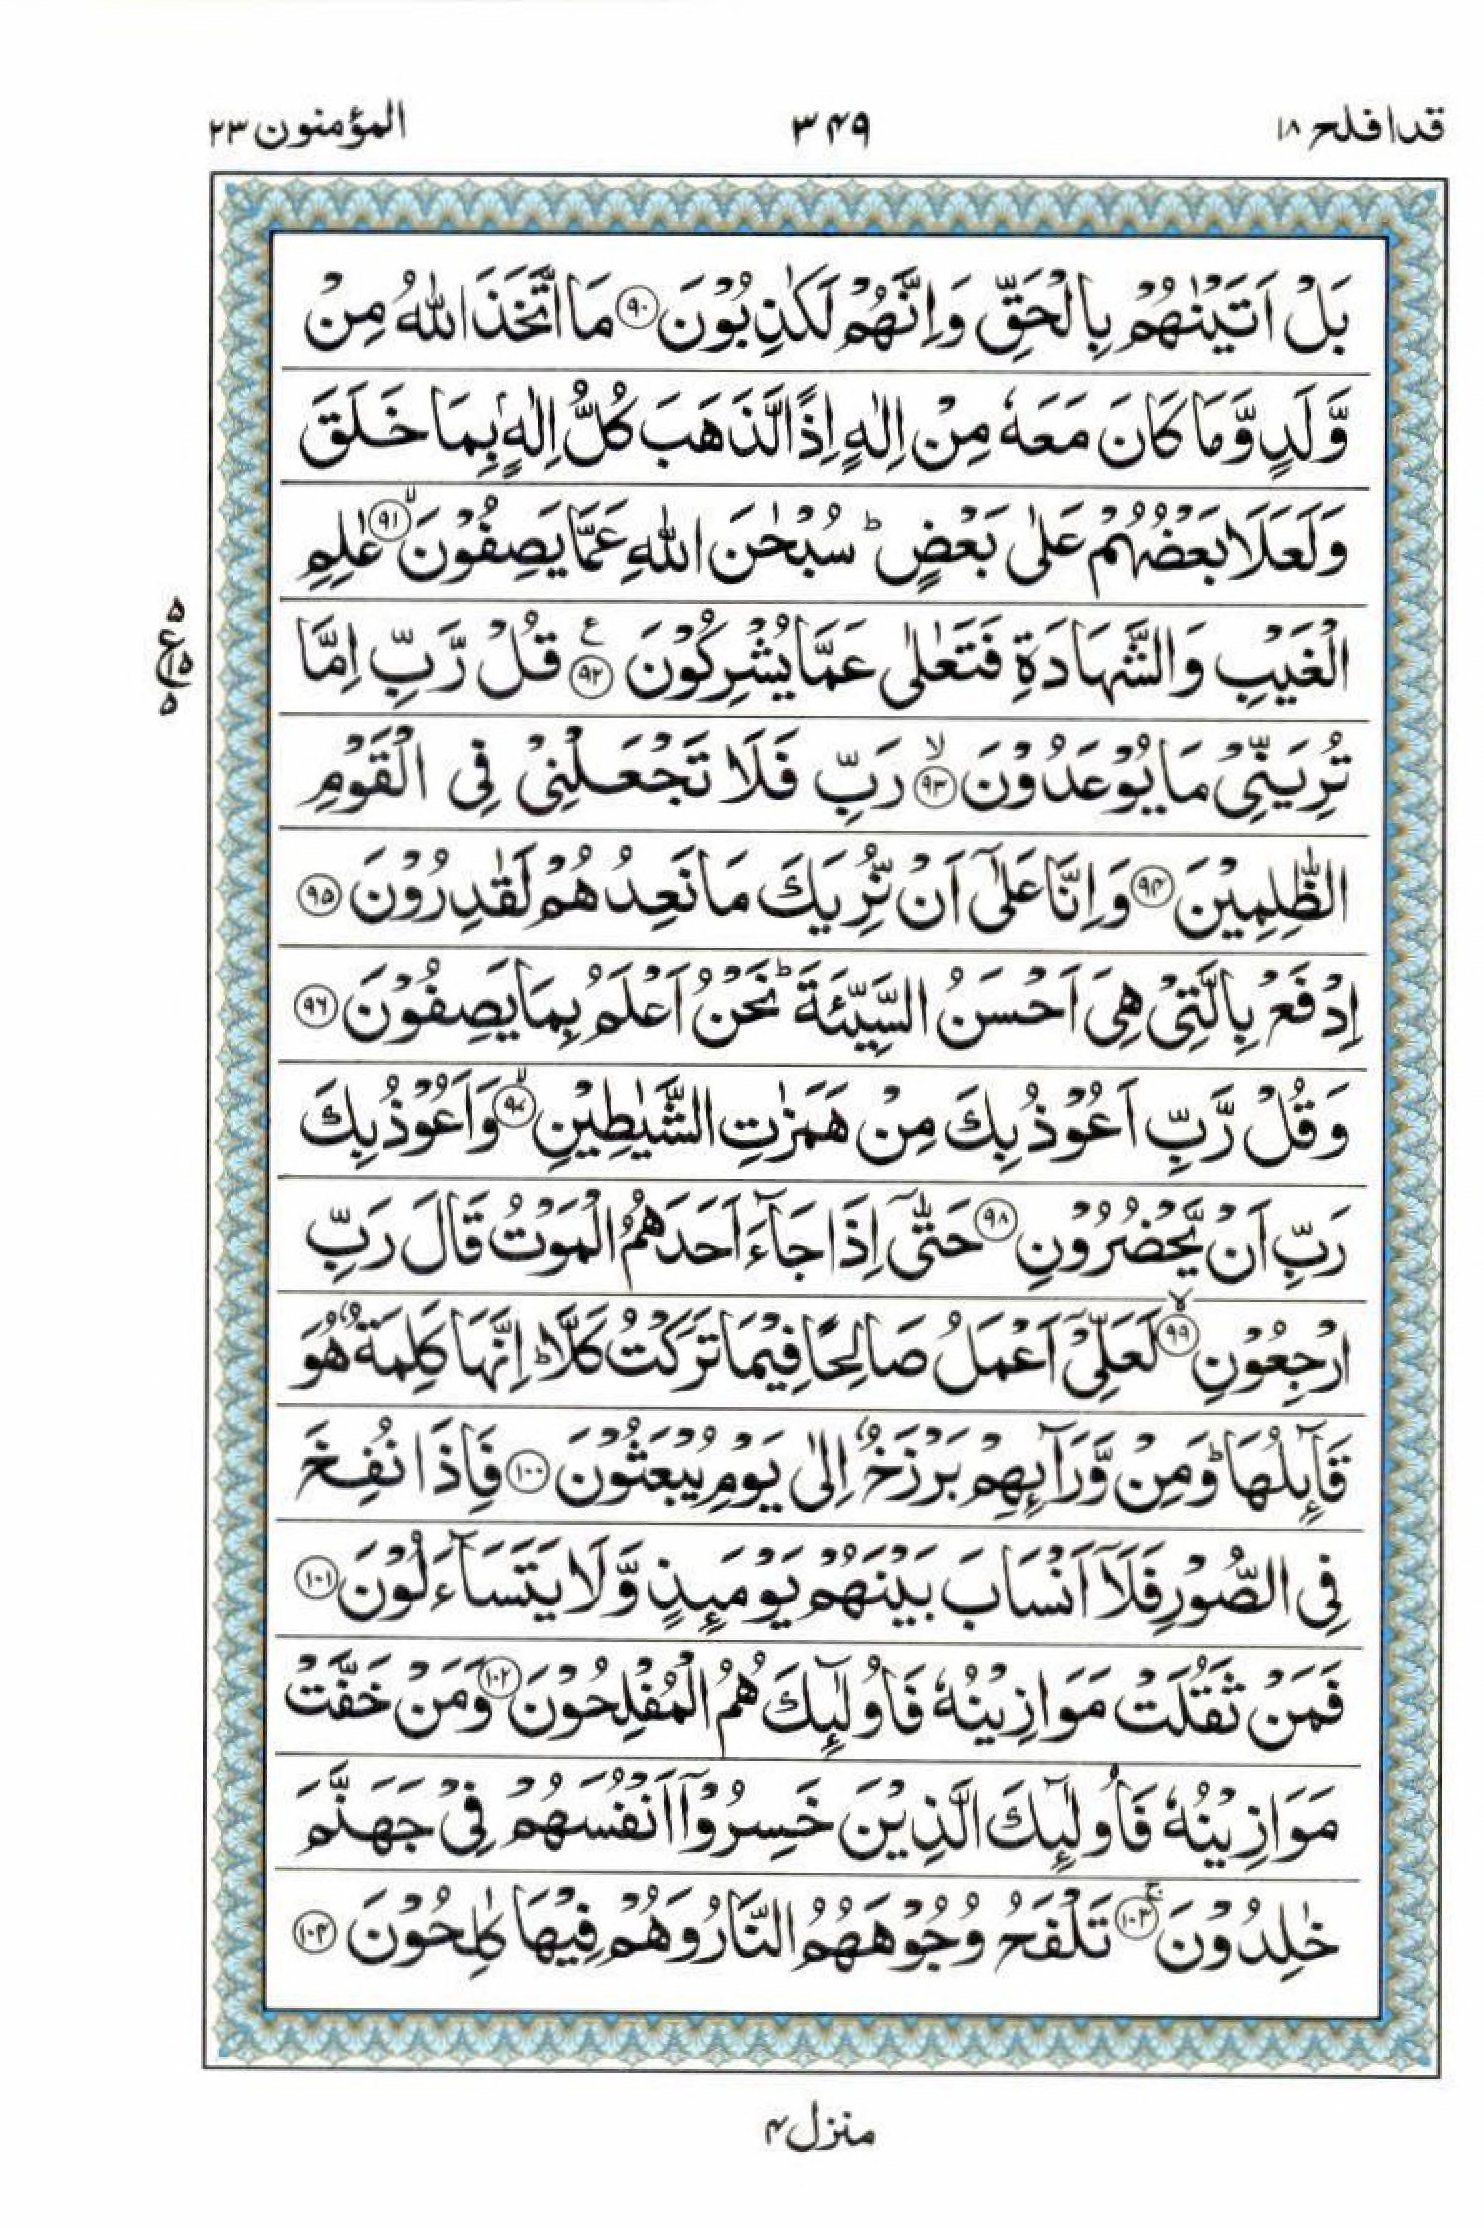 قد افلح ۱۸
۳۴۹
المؤمنون ۲۳
بَلْ اَتَيْنٰهُمْ بِالْحَقِّ وَاِنَّهُمْ لَكٰذِبُوْنَ ۹۰ مَا اتَّخَذَ اللّٰهُ مِنْ
وَّلَدٍ وَّمَا كَانَ مَعَهٗ مِنْ اِلٰهٍ اِذًا لَّذَهَبَ كُلُّ اِلٰهٍۭ بِمَا خَلَقَ
وَلَعَلَا بَعْضُهُمْ عَلٰى بَعْضٍ ؕ سُبْحٰنَ اللّٰهِ عَمَّا يَصِفُوْنَ ۙ۹۱ عٰلِمِ
الْغَيْبِ وَالشَّهَادَةِ فَتَعٰلٰى عَمَّا يُشْرِكُوْنَ ۹۲ ع قُلْ رَّبِّ اِمَّا
تُرِيَنِّيْ مَا يُوْعَدُوْنَ ۙ۹۳ رَبِّ فَلَا تَجْعَلْنِيْ فِي الْقَوْمِ
الظّٰلِمِيْنَ ۹۴ وَاِنَّا عَلٰٓى اَنْ نُّرِيَكَ مَا نَعِدُهُمْ لَقٰدِرُوْنَ ۹۵
اِدْفَعْ بِالَّتِيْ هِيَ اَحْسَنُ السَّيِّئَةَ ؕ نَحْنُ اَعْلَمُ بِمَا يَصِفُوْنَ ۹۶
وَقُلْ رَّبِّ اَعُوْذُ بِكَ مِنْ هَمَزٰتِ الشَّيٰطِيْنِ ۙ۹۷ وَاَعُوْذُ بِكَ
رَبِّ اَنْ يَّحْضُرُوْنِ ۹۸ حَتّٰٓى اِذَا جَآءَ اَحَدَهُمُ الْمَوْتُ قَالَ رَبِّ
ارْجِعُوْنِ ۙ۹۹ لَعَلِّيْٓ اَعْمَلُ صَالِحًا فِيْمَا تَرَكْتُ كَلَّا ؕ اِنَّهَا كَلِمَةٌ هُوَ
قَآئِلُهَا ؕ وَمِنْ وَّرَآئِهِمْ بَرْزَخٌ اِلٰى يَوْمِ يُبْعَثُوْنَ ۱۰۰ فَاِذَا نُفِخَ
فِي الصُّوْرِ فَلَآ اَنْسَابَ بَيْنَهُمْ يَوْمَئِذٍ وَّلَا يَتَسَآءَلُوْنَ ۱۰۱
فَمَنْ ثَقُلَتْ مَوَازِيْنُهٗ فَاُولٰٓئِكَ هُمُ الْمُفْلِحُوْنَ ۱۰۲ وَمَنْ خَفَّتْ
مَوَازِيْنُهٗ فَاُولٰٓئِكَ الَّذِيْنَ خَسِرُوْٓا اَنْفُسَهُمْ فِيْ جَهَنَّمَ
خٰلِدُوْنَ ۚ۱۰۳ تَلْفَحُ وُجُوْهَهُمُ النَّارُ وَهُمْ فِيْهَا كٰلِحُوْنَ ۱۰۴
۵
ع
۱۵
۵
منزل ۴